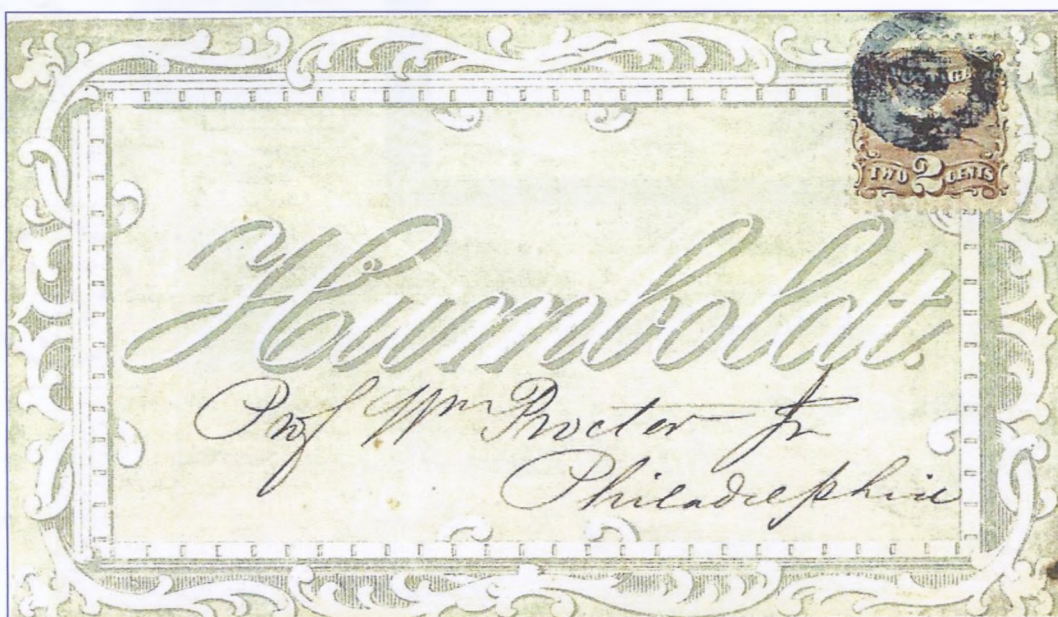 TWO 2 CENTS
Humboldt.
Prof Wm Procter Jr
Philadelphia